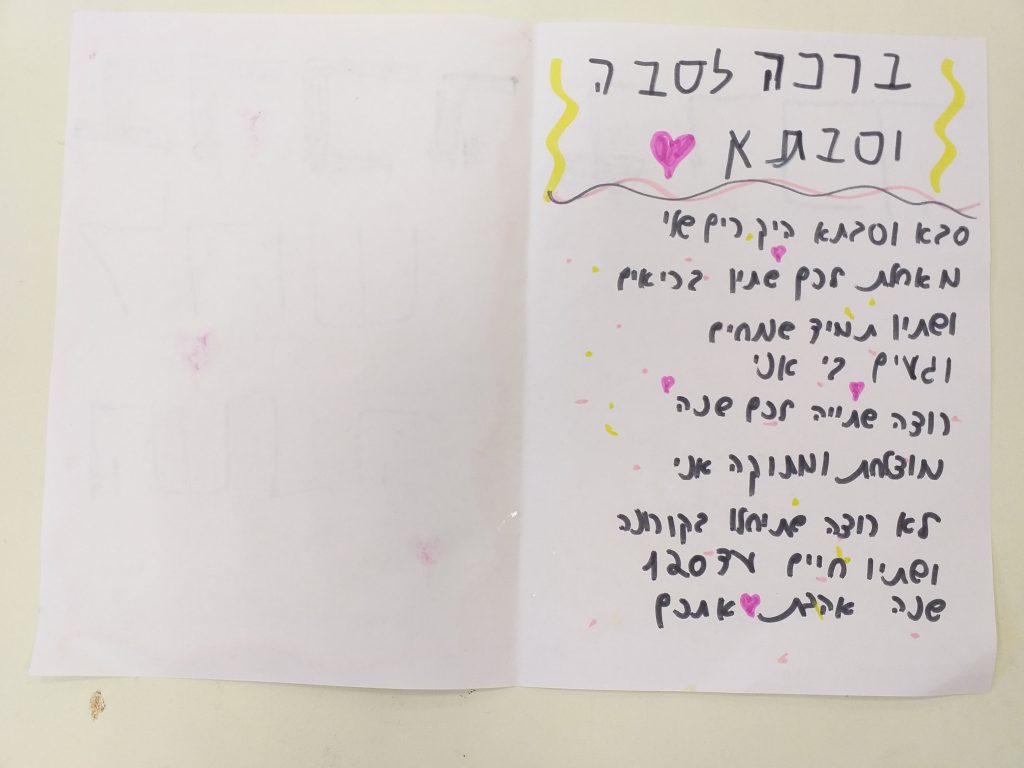 ברכה לסבה
וסבתא
סבא וסבתא היקרים שלי
מאחלת לכם שתיו בריאים
ושתיו תמיד שמחים
וגעים כי אני
רוצה שתייה לכם שנה
מוצלחת ומתוקה אני
לא רוצה שתיחלו בקורונה
ושתיו חיים עד 120
שנה אהבת אתכם